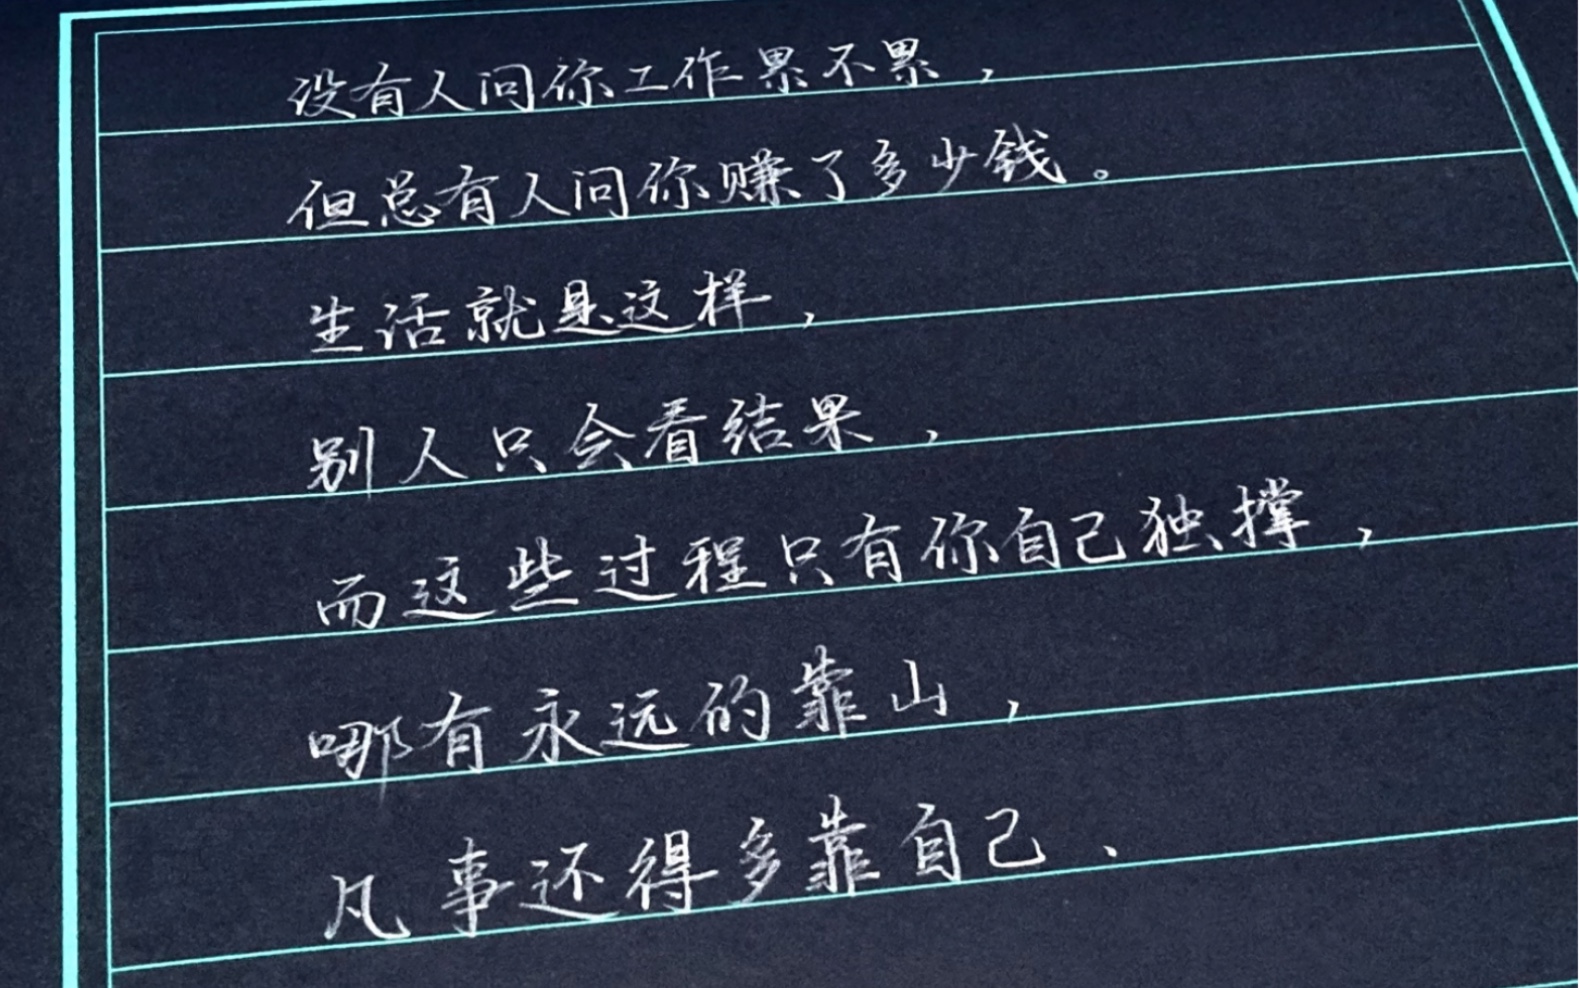 没有人问你工作累不累，
但总有人问你赚了多少钱。
生活就是这样，
别人只会看结果，
而这些过程只有你自己独撑，
哪有永远的靠山，
凡事还得多靠自己、